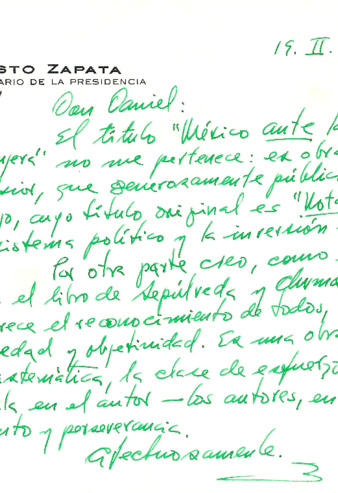 19. II.
STO ZAPATA
ARIO DE LA PRESIDENCIA
Don Daniel:
El título "México ante l
njera" no me pertenece: es obra
sior, que generosamente public
jo, cuyo título original es "Nota
istema político y la inversión
Por otra parte creo, como
el libro de Sepúlveda y Chuma
rece el reconocimiento de todos,
edad y objetividad. Es una obra
istemática, la clase de esfuerzo
la en el autor — los autores, en
nto y perseverancia.
Afectuosamente.